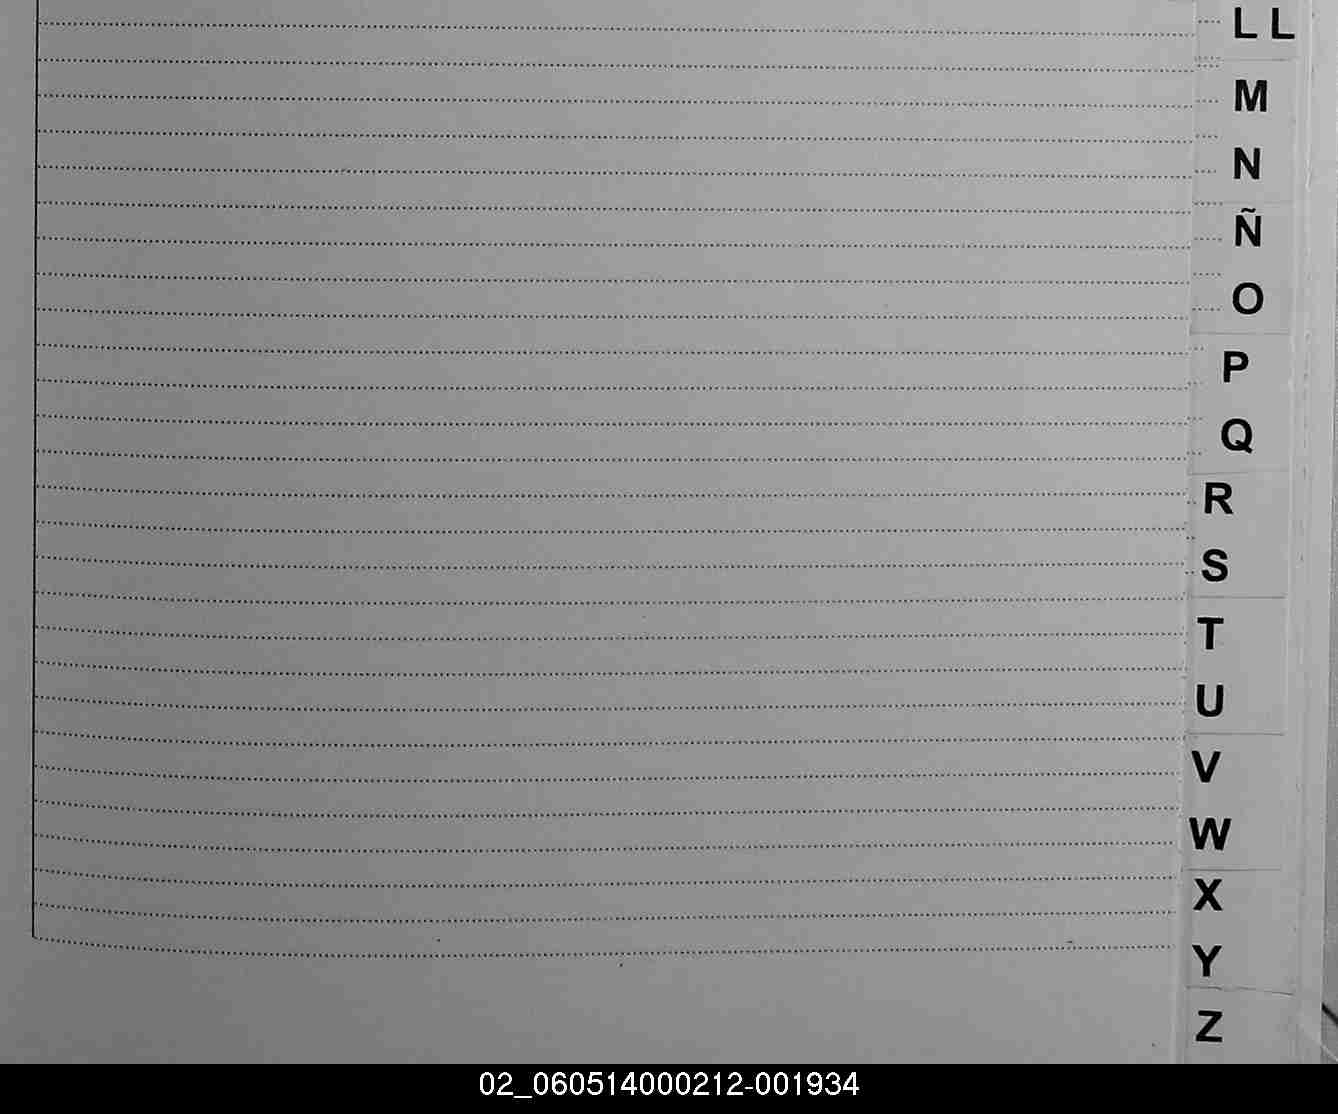 L L
M
N
Ñ
O
P
Q
R
S
T
U
V
W
X
Y
Z
02_060514000212-001934